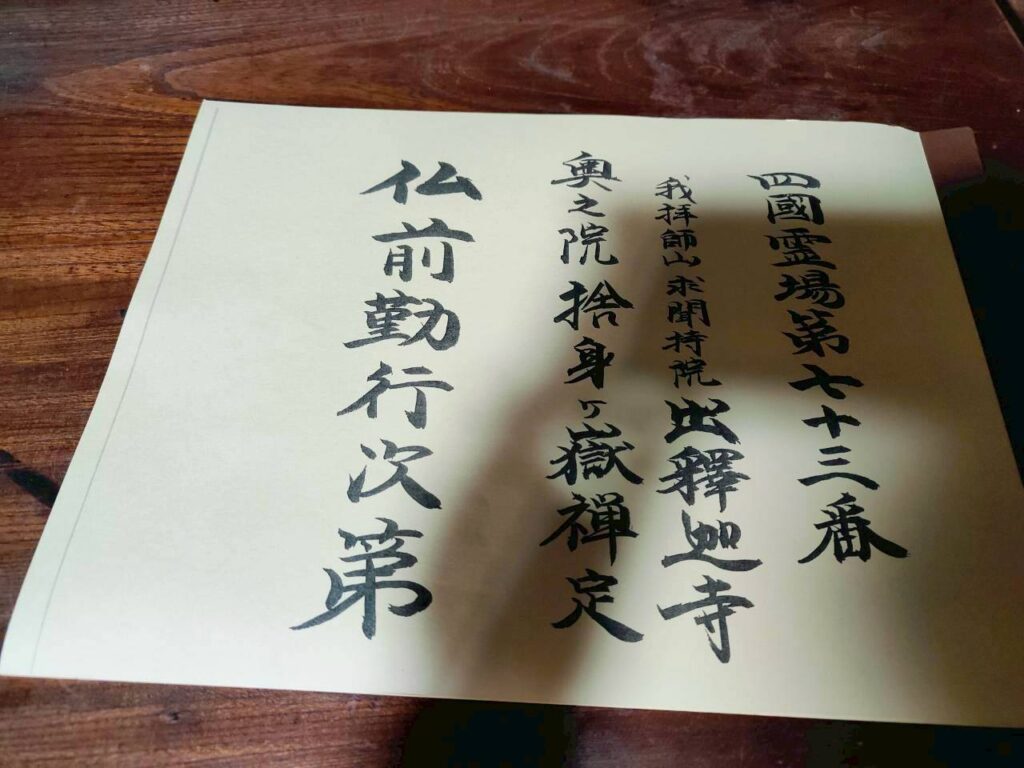 四國霊場第七十三番
我拝師山求聞持院出釋迦寺
奥之院捨身ヶ嶽禅定
仏前勤行次第